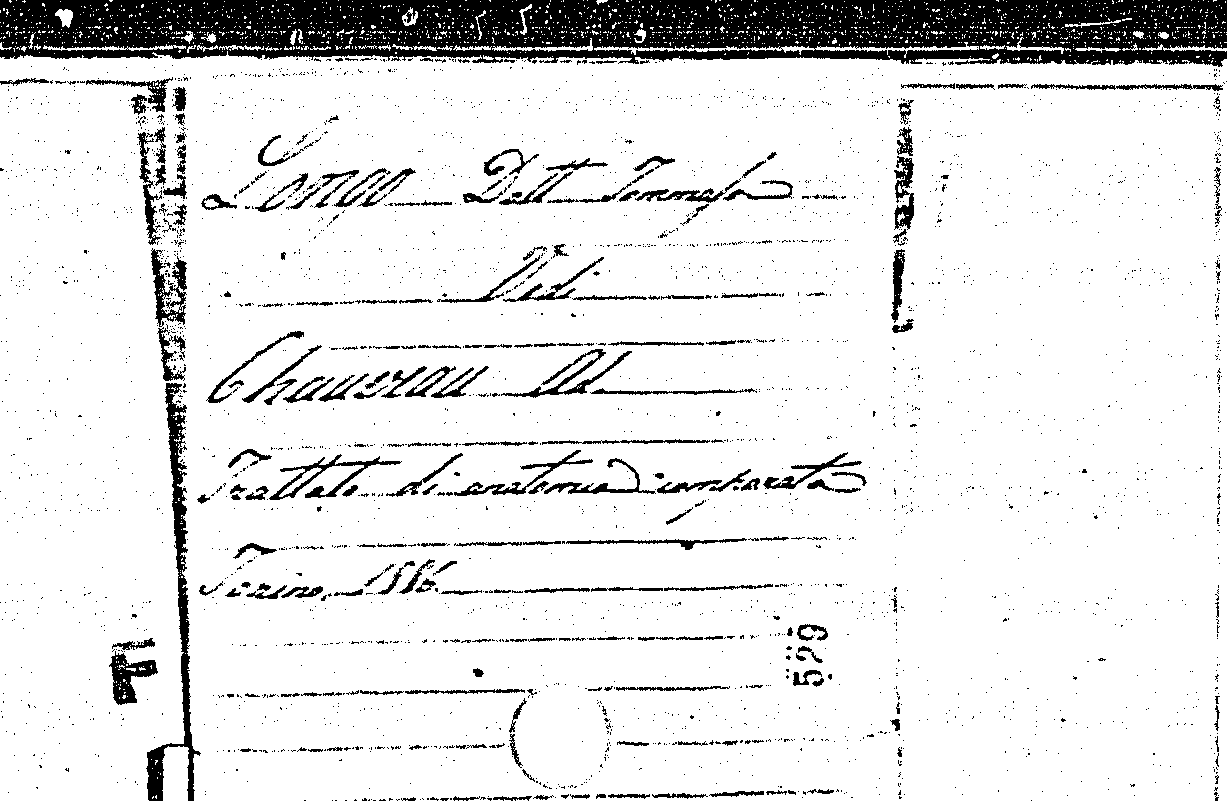 Longo Dott Tommaso
Vedi
Chauveau A.
Trattato di anatomia comparata
Torino, 1886
529